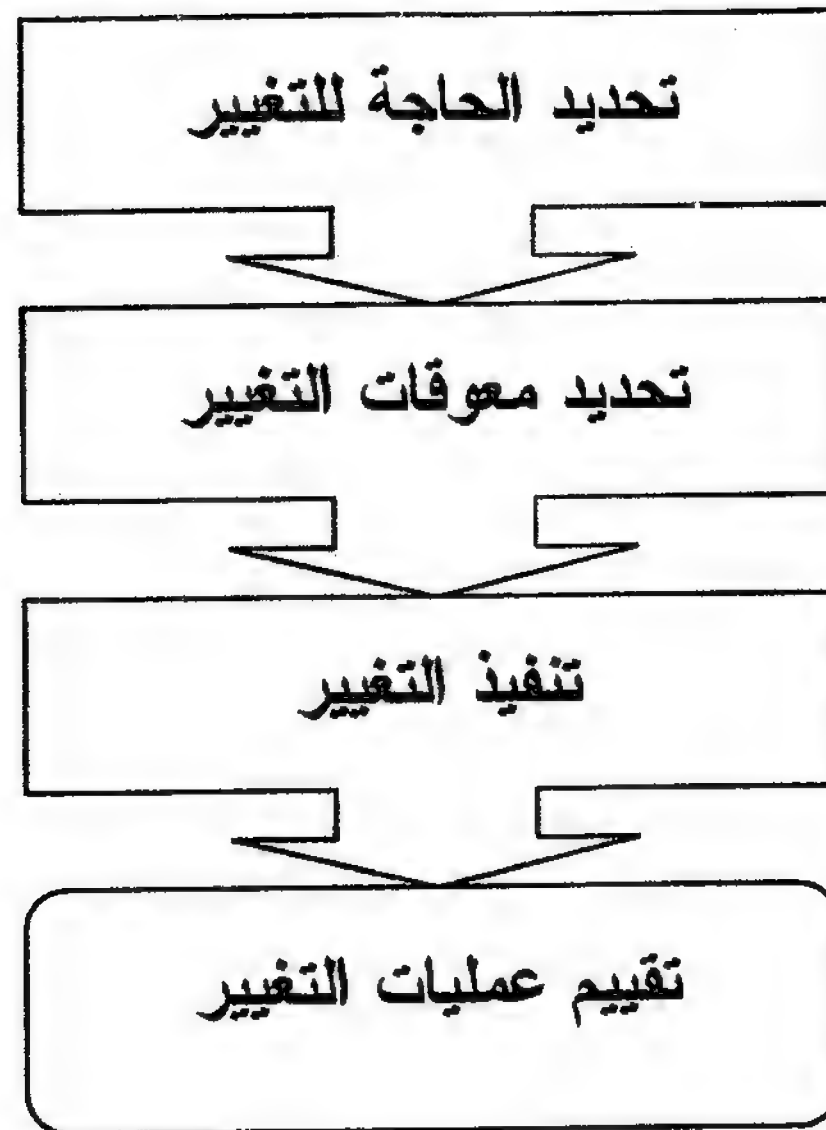 تحديد الحاجة للتغيير
تحديد معوقات التغيير
تنفيذ التغيير
تقييم عمليات التغيير